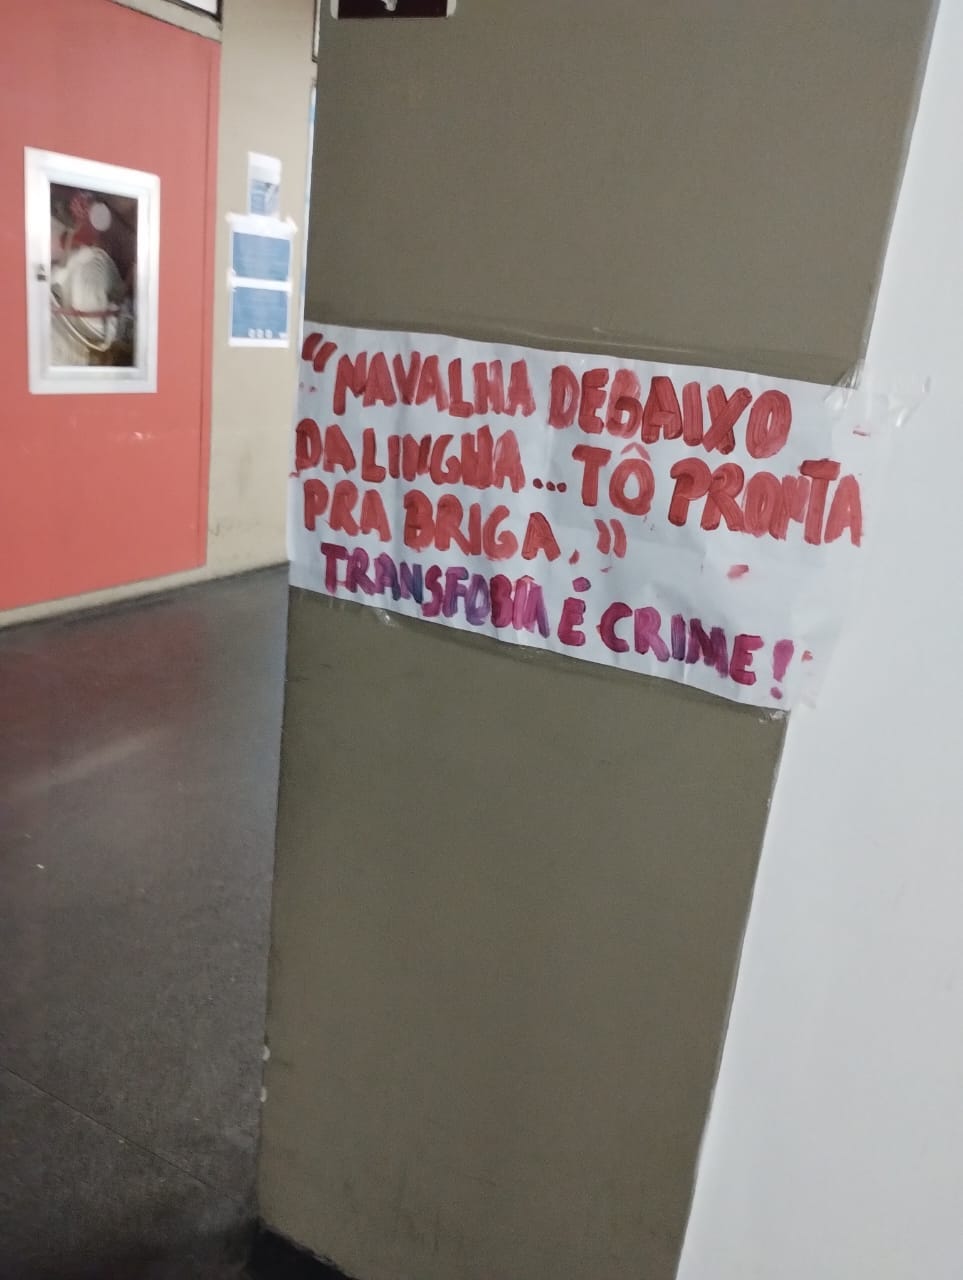 “NAVALHA DEBAIXO
DA LINGUA... TÔ PRONTA
PRA BRIGA.”
TRANSFOBIA É CRIME!